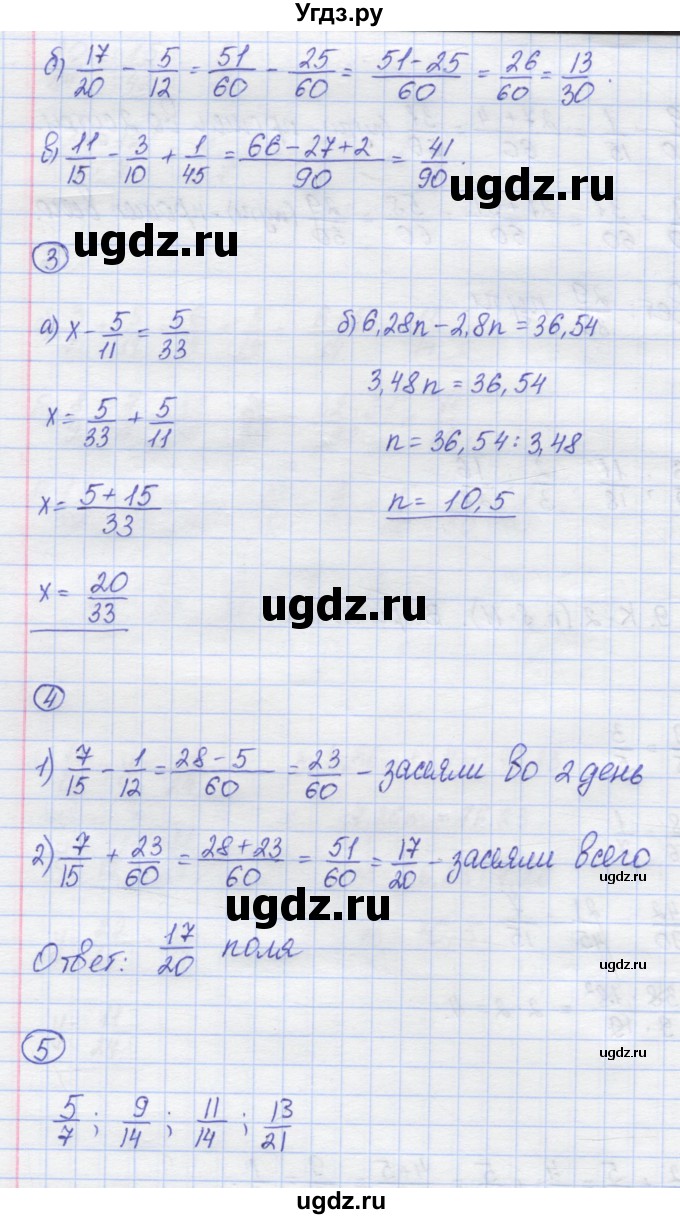 Угдз.ру
б) 17/20 - 5/12 = 51/60 - 25/60 = (51-25)/60 = 26/60 = 13/30.
в) 11/15 - 3/10 + 1/45 = (66-27+2)/90 = 41/90.
ugdz.ru
ugdz.ru
3
а) x - 5/11 = 5/33
б) 6,28n - 2,8n = 36,54
x = 5/33 + 5/11
3,48n = 36,54
n = 36,54 : 3,48
x = (5+15)/33
n = 10,5
x = 20/33
ugdz.ru
ugdz.ru
4
1) 7/15 - 1/12 = (28-5)/60 = 23/60 - засеяли во 2 день
2) 7/15 + 23/60 = (28+23)/60 = 51/60 = 17/20 - засеяли всего
ugdz.ru
ugdz.ru
Ответ: 17/20 поля
5
ugdz.ru
5/7; 9/14; 11/14; 13/21
ugdz.ru
ugdz.ru